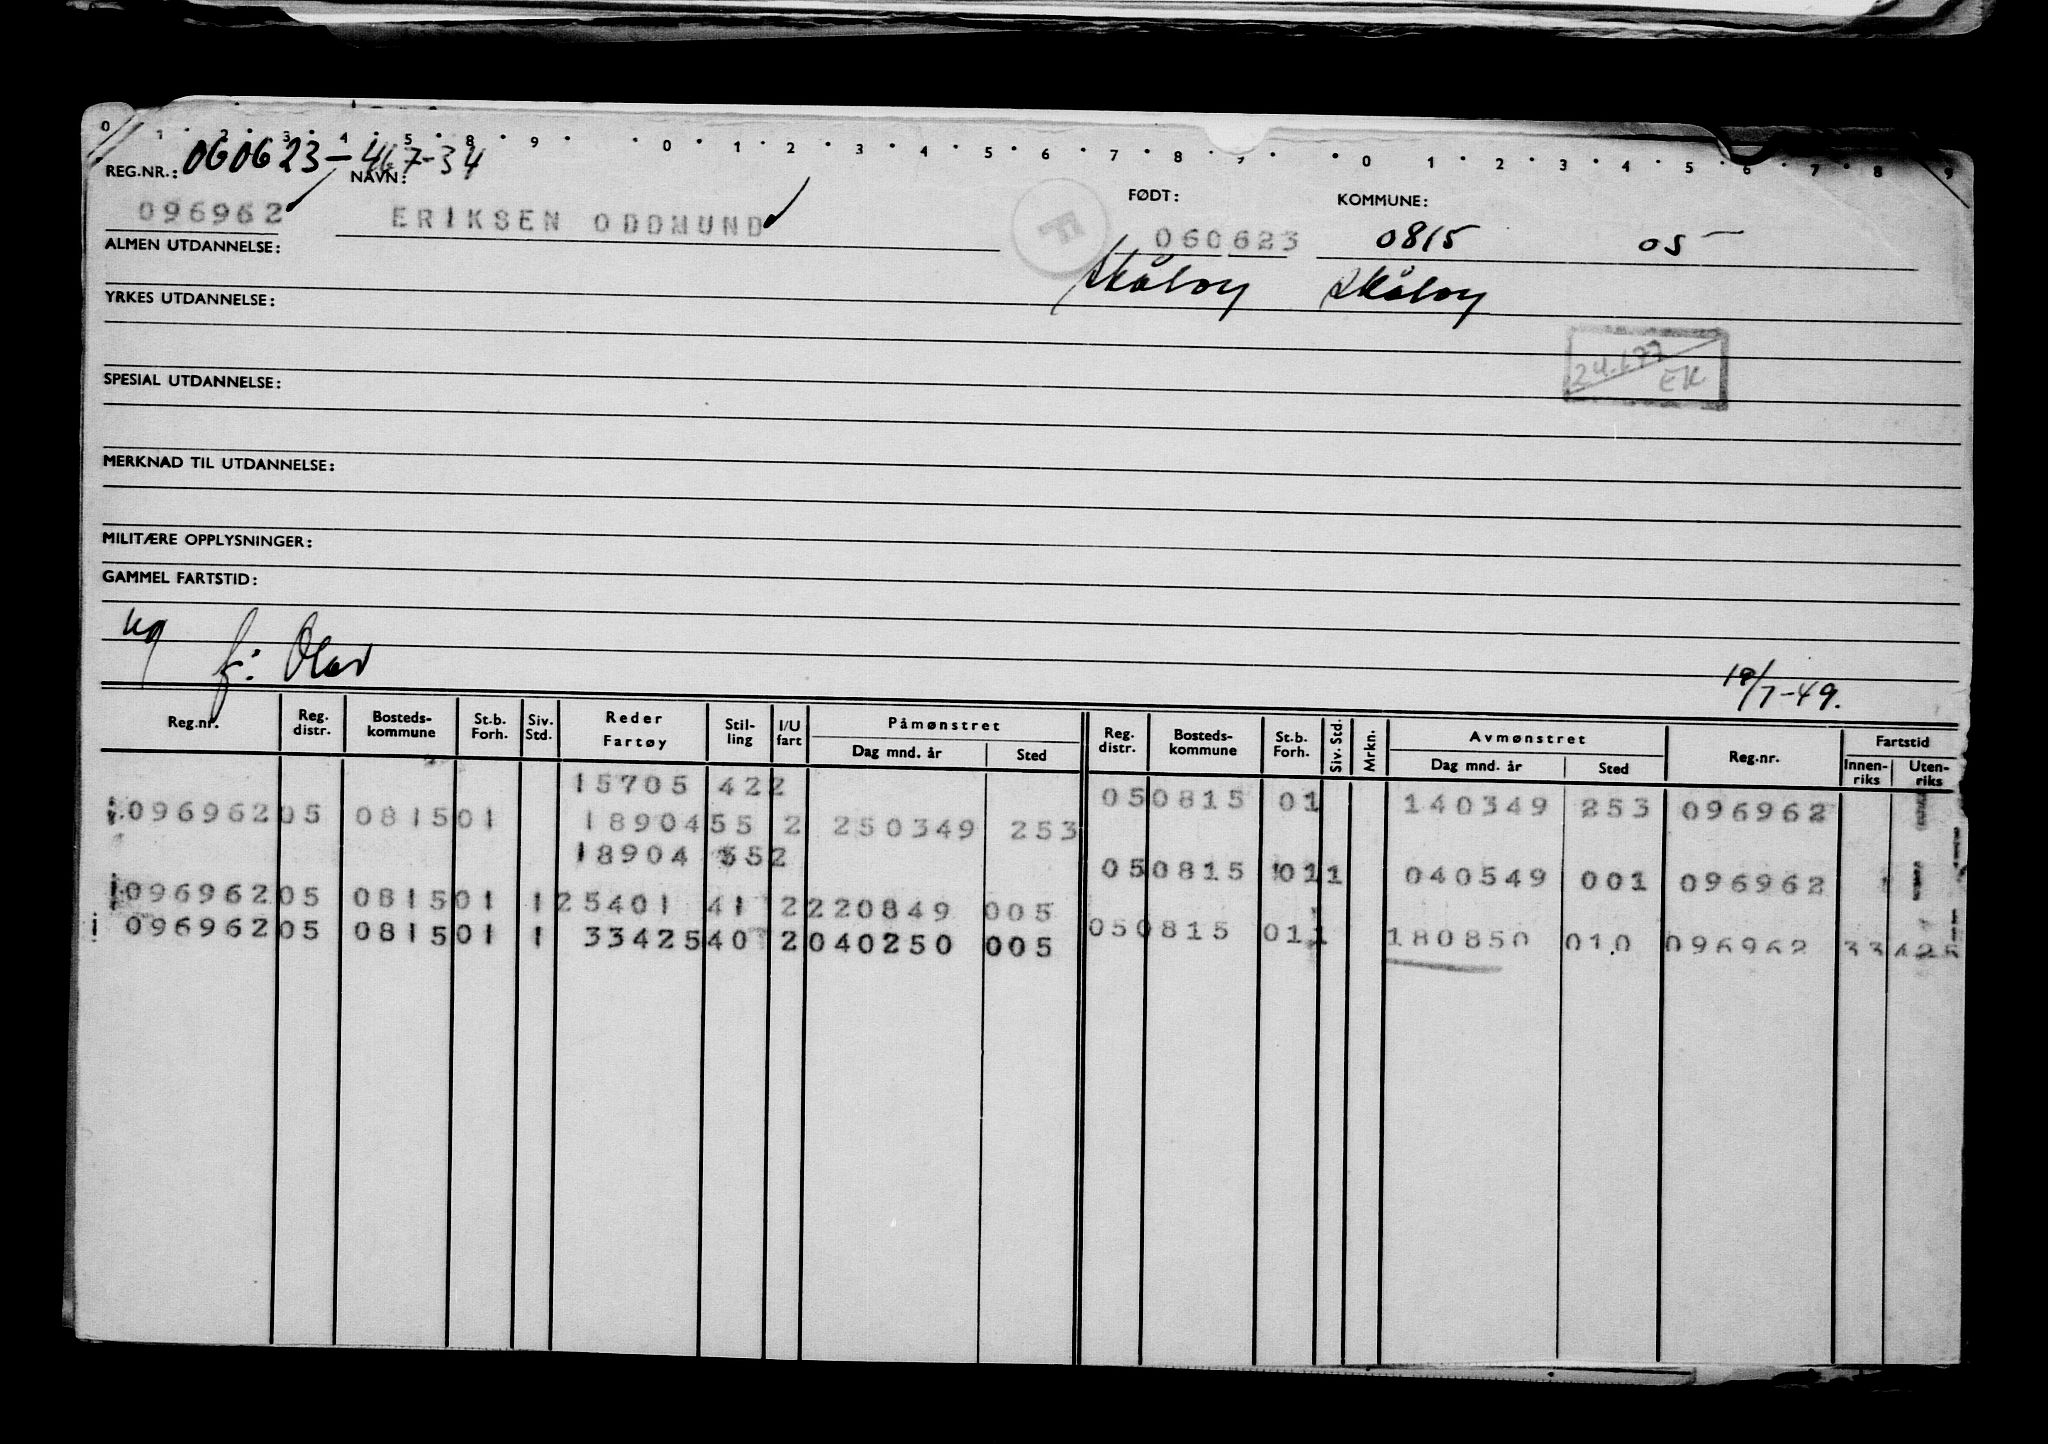 0 1 2 3 4 5 8 9 0 1 2 3 4 5 6 7 8 9 0 1 2 3 4 5 6 7 8 9
REG.NR.: 060623-467-34 NAVN: FØDT: KOMMUNE:
096962 ERIKSEN ODDMUND 060623 0815 05
ALMEN UTDANNELSE: Skåtøy Skåtøy
YRKES UTDANNELSE:
24.1.77 EK
SPESIAL UTDANNELSE:
MERKNAD TIL UTDANNELSE:
MILITÆRE OPPLYSNINGER:
GAMMEL FARTSTID:
ug f: Olav
19/7-49.
Reg.nr. Reg. distr. Bosteds-kommune St.b. Forh. Siv. Std. Reder Fartøy Stil-ling I/U fart Påmønstret Dag mnd. år Sted Reg. distr. Bosteds-kommune St.b. Forh. Siv. Std. Mrkn. Avmønstret Dag mnd. år Sted Reg.nr. Fartstid Innen-riks Uten-riks
15705 422 050815 01 140349 253 096962
096962 05 0815 01 18904 55 2 250349 253
18904 552 050815 011 040549 001 096962
096962 05 0815 01 1 25401 41 2 220849 005
096962 05 0815 01 1 33425 40 2 040250 005 050815 011 180850 010 096962 33425